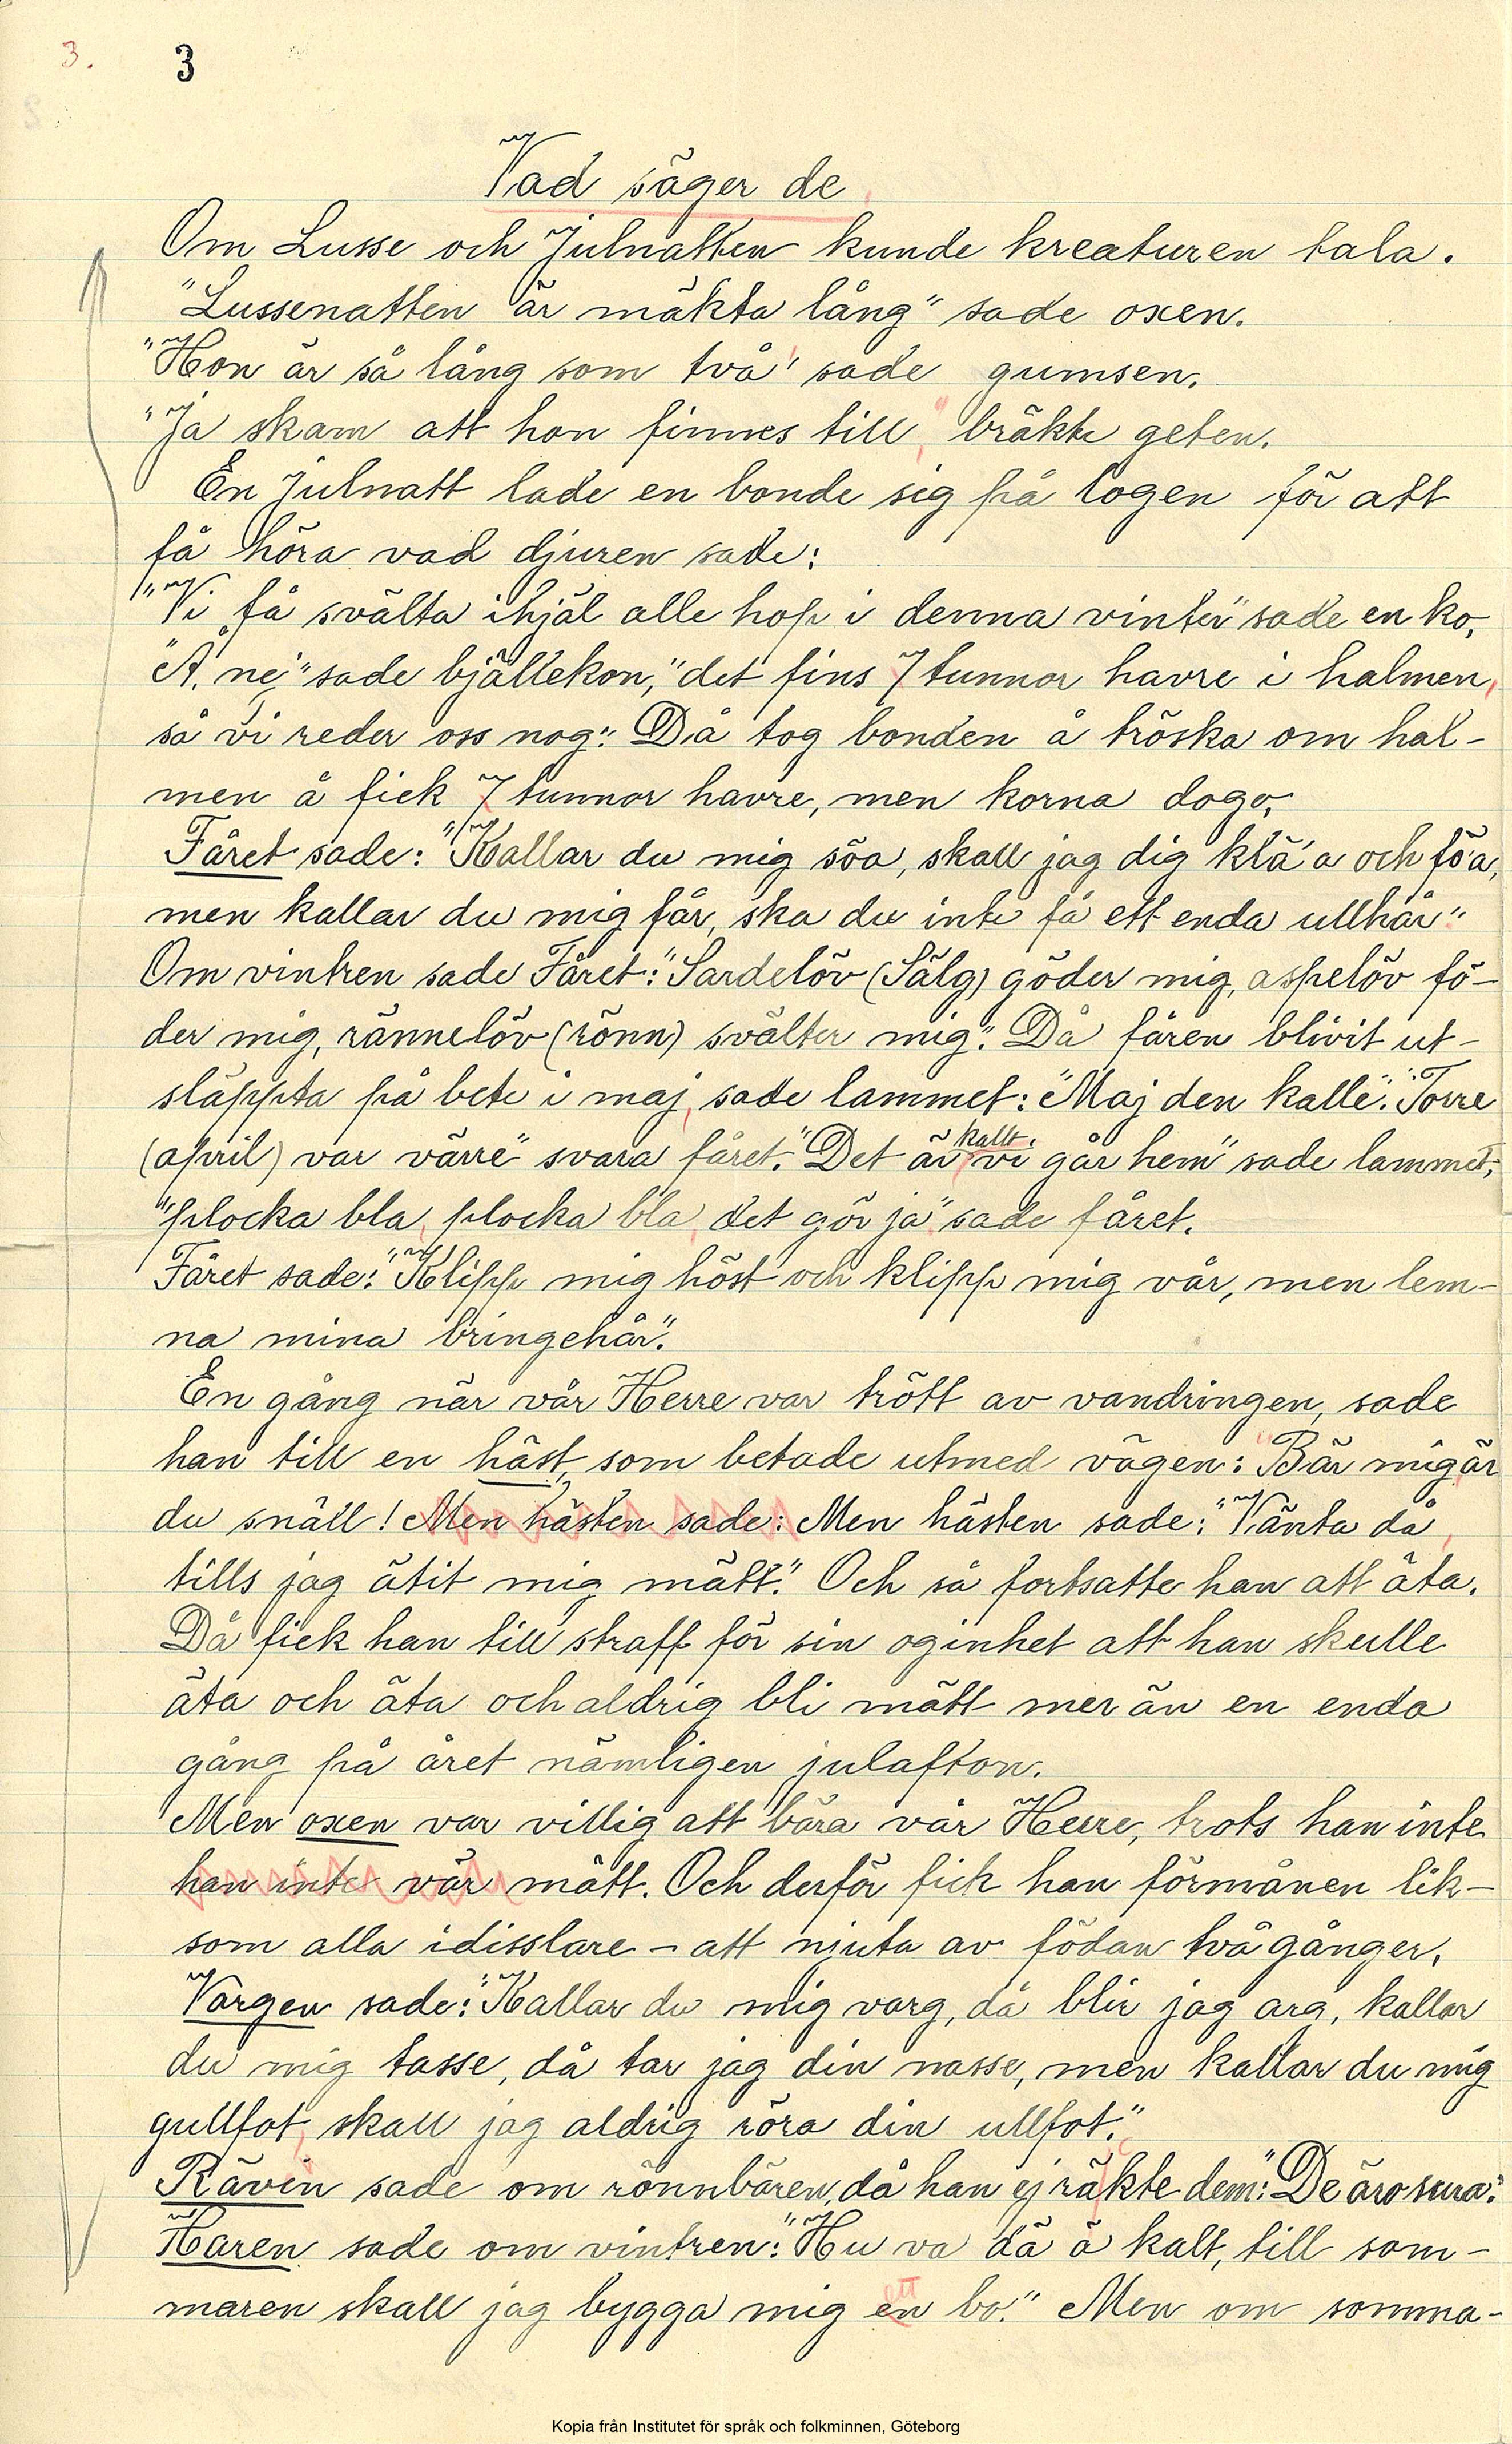 3. 3
Vad säger de
Om Lusse och Julnatten kunde kreaturen tala.
"Lussenatten är mäkta lång" sade oxen.
"Hon är så lång som två" sade gumsen.
"Ja skam att hon finnes till," bräkte geten.
En Julnatt lade en bonde sig på logen för att
få höra vad djuren sade:
"Vi få svälta ihjäl alle hop i denna vinter" sade en ko,
"Å, nej" sade bjällekon, "det fins 7 tunnor havre i halmen,
så vi reder oss nog". Då tog bonden å tröska om hal-
men å fick 7 tunnor havre, men korna dogo.
Fåret sade: "Kallar du mig söa, skall jag dig klä'a och fö'a,
men kallar du mig får, ska du inte få ett enda ullhår"
Om vintren sade Fåret: "Sardelöv (Sälg) göder mig, aspelöv fö-
der mig, rännelöv (rönn) svälter mig". Då fåren blivit ut-
släppta på bete i maj, sade lammet: "Maj den kalle". "Torre
(april) var värre" svara fåret. "Det är kallt, vi går hem" sade lammet,
"plocka bla, plocka bla, det gör ja" sade fåret.
Fåret sade: "Klipp mig höst och klipp mig vår, men lem-
na mina bringehår".
En gång när vår Herre var trött av vandringen, sade
han till en häst, som betade utmed vägen: "Bär mig, är
du snäll! Men hästen sade: Men hästen sade: "Vänta då,
tills jag ätit mig mätt." Och så fortsatte han att äta.
Då fick han till straff för sin oginhet att han skulle
äta och äta och aldrig bli mätt mer än en enda
gång på året nämligen julafton.
Men oxen var villig att bära vår Herre, trots han inte
han inte var mätt. Och derför fick han förmånen lik-
som alla idisslare – att njuta av födan två gånger.
Vargen sade: "Kallar du mig varg, då blir jag arg, kallar
du mig tasse, då tar jag din nasse, men kallar du mig
gullfot, skall jag aldrig röra din ullfot."
Räven sade om rönnbären, då han ej räkte dem: "De äro sura".
Haren sade om vintren: "Hu va dä ä kalt, till som-
maren skall jag bygga mig en ett bo." Men om somma-
Kopia från Institutet för språk och folkminnen, Göteborg